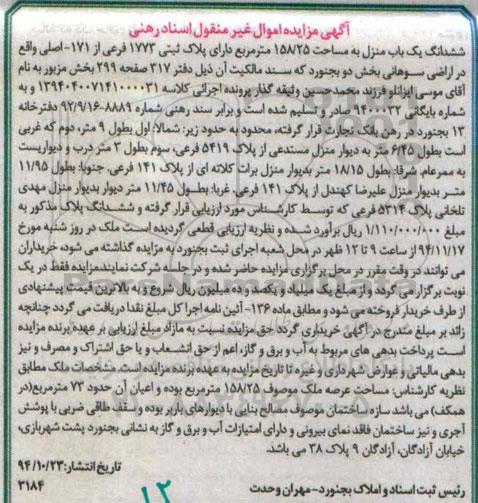 آگهی مزایده اموال غیر منقول اسناد رهنی
ششدانگ یک باب منزل به مساحت ۱۵۸/۲۵ مترمربع دارای پلاک ثبتی ۱۷۷۳ فرعی از ۱۷۱- اصلی واقع
در اراضی سوهانی بخش دو بجنورد که سند مالکیت آن ذیل دفتر ۳۱۷ صفحه ۲۹۹ بخش مزبور به نام
آقای موسی ایزانلو فرزند محمدحسین وثیقه گذار پرونده اجرائی کلاسه ۱۳۹۴۰۴۰۰۷۱۴۱۰۰۰۰۳۱ و به
شماره بایگانی ۹۴۰۰۰۳۲ صادر و تسلیم شده است و برابر سند رهنی شماره ۸۸۸۹-۹۲/۹/۱۶ دفترخانه
۱۳ بجنورد در رهن بانک تجارت قرار گرفته، محدود به حدود زیر: شمالا: اول بطول ۹ متر، دوم که غربی
است بطول ۶/۴۵ متر به دیوار منزل مستدعی از پلاک ۵۴۱۹ فرعی، سوم بطول ۳ متر درب و دیواریست
به ممرعام، شرقا: بطول ۱۸/۱۵ متر بدیوار منزل برات کلاته ای از پلاک ۱۴۱ فرعی، جنوبا: بطول ۱۱/۹۵
متر بدیوار منزل علیرضا کهندل از پلاک ۱۴۱ فرعی، غربا: بطول ۱۱/۴۵ متر دیوار بدیوار منزل مهدی
تلخابی پلاک ۵۳۱۴ فرعی که توسط کارشناس مورد ارزیابی قرار گرفته و ششدانگ پلاک مذکور به
مبلغ ۱/۱۱۰/۰۰۰/۰۰۰ ریال برآورد شده و نظریه ارزیابی قطعی گردیده است ملک در روز شنبه مورخ
۹۴/۱۱/۱۷ از ساعت ۹ تا ۱۲ ظهر در محل شعبه اجرای ثبت بجنورد به مزایده گذاشته می شود، خریداران
می توانند در وقت مقرر در محل برگزاری مزایده حاضر شده و در جلسه شرکت نمایند مزایده فقط در یک
نوبت برگزار می گردد و از مبلغ یک میلیارد و یکصد و ده میلیون ریال شروع و به بالاترین قیمت پیشنهادی
از طرف خریدار فروخته می شود و مطابق ماده ۱۳۶- آئین نامه اجرا کل مبلغ نقدا دریافت می گردد چنانچه
زائد بر مبلغ مندرج در آگهی خریداری گردد حق مزایده نسبت به مازاد مبلغ ارزیابی بر عهده برنده مزایده
است پرداخت بدهی های مربوط به آب و برق و گاز، اعم از حق انشعاب و یا حق اشتراک و مصرف و نیز
بدهی مالیاتی و عوارض شهرداری و غیره تا تاریخ مزایده به عهده برنده مزایده است. مشخصات ملک مطابق
نظریه کارشناس: مساحت عرصه ملک موصوف ۱۵۸/۲۵ مترمربع بوده و اعیان آن حدود ۷۳ مترمربع(در
همکف) می باشد سازه ساختمان موصوف مصالح بنایی با دیوارهای باربر بوده و سقف طاقی ضربی با پوشش
آجری و نیز ساختمان فاقد نمای بیرونی و دارای امتیازات آب و برق و گاز به نشانی بجنورد پشت شهربازی،
خیابان آزادگان، آزادگان ۹ پلاک ۳۸ می باشد.
تاریخ انتشار: ۹۴/۱۰/۲۳
رئیس ثبت اسناد و املاک بجنورد- مهران وحدت
۳۱۸۴
۱۲